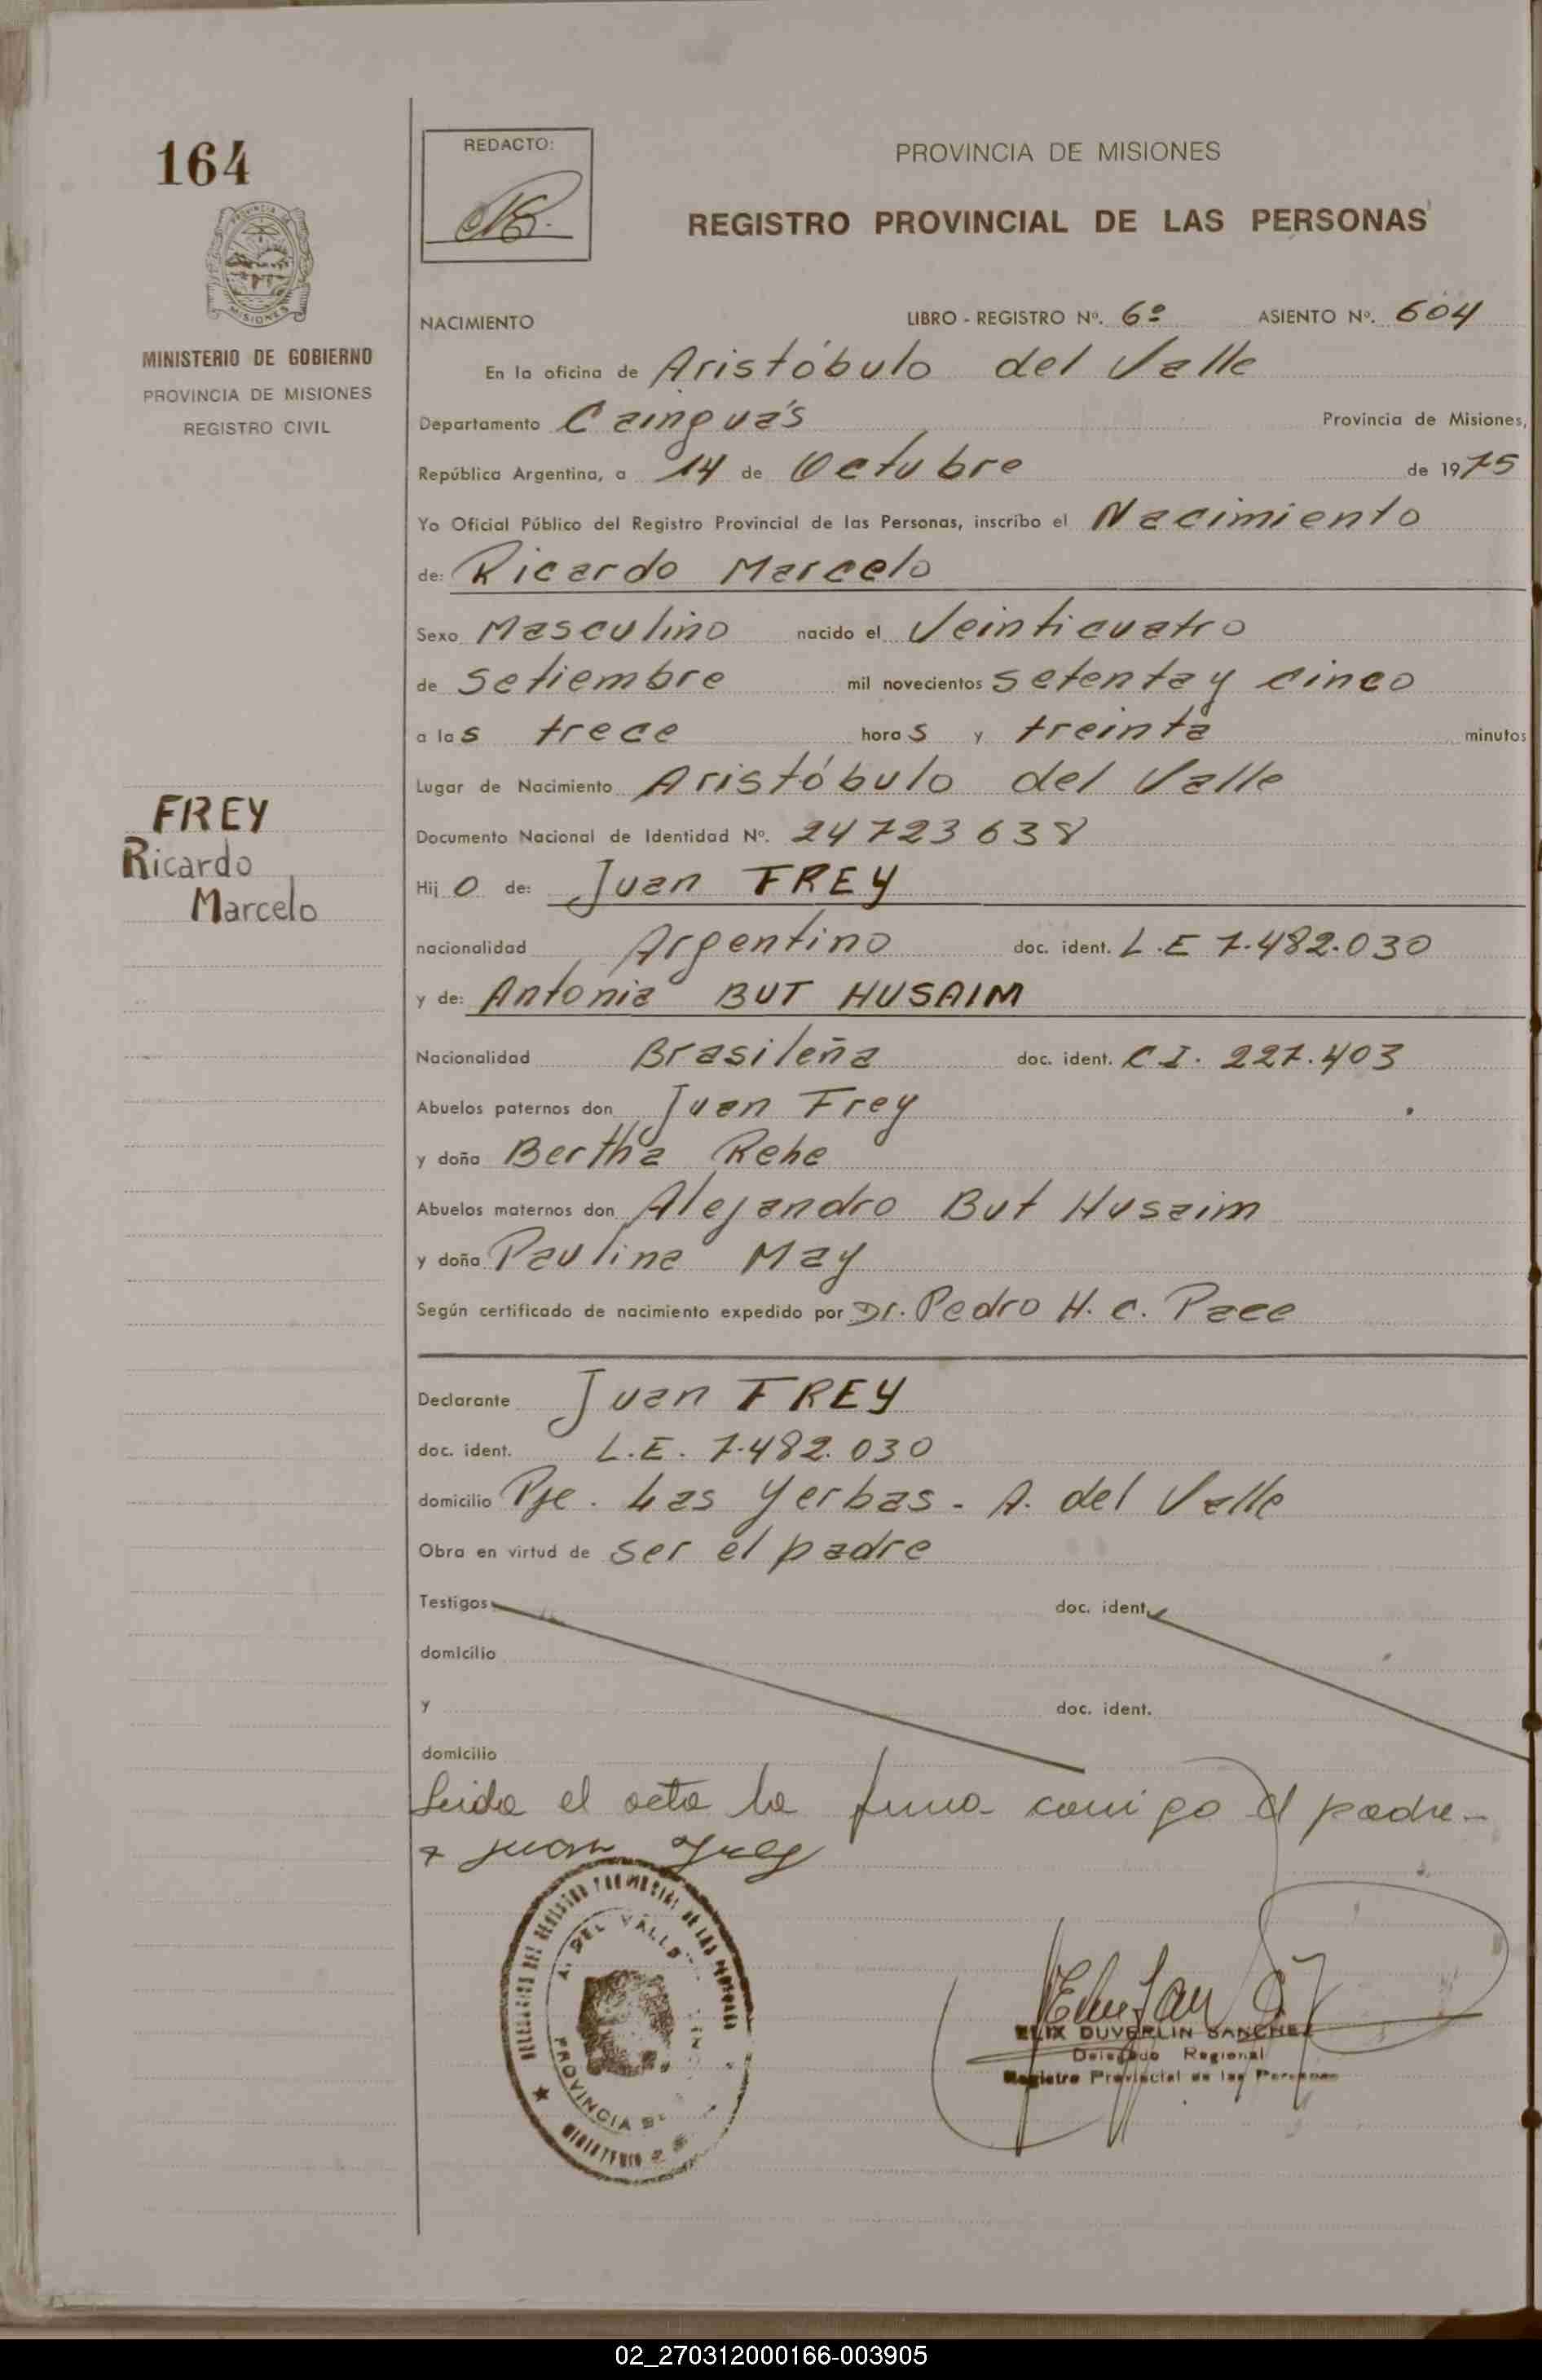 164
REDACTO:
PROVINCIA DE MISIONES
REGISTRO PROVINCIAL DE LAS PERSONAS
MISIONES
MINISTERIO DE GOBIERNO
PROVINCIA DE MISIONES
REGISTRO CIVIL
NACIMIENTO LIBRO - REGISTRO Nº. 6º ASIENTO Nº. 604
En la oficina de Aristóbulo del Valle
Departamento Cainguás Provincia de Misiones,
República Argentina, a 14 de Octubre de 1975
Yo Oficial Público del Registro Provincial de las Personas, inscribo el Nacimiento
de: Ricardo Marcelo
Sexo Masculino nacido el Veinticuatro
de Setiembre mil novecientos setenta y cinco
a las trece horas y treinta minutos
Lugar de Nacimiento Aristóbulo del Valle
Documento Nacional de Identidad Nº. 24723638
FREY
Ricardo
Marcelo
Hijo de: Juan FREY
nacionalidad Argentino doc. ident. L.E 7.482.030
y de: Antonia BUT HUSAIM
Nacionalidad Brasileña doc. ident. C I. 227.403
Abuelos paternos don Juan Frey
y doña Bertha Rehe
Abuelos maternos don Alejandro But Husaim
y doña Paulina May
Según certificado de nacimiento expedido por Dr. Pedro H. C. Pace
Declarante Juan FREY
doc. ident. L.E. 7.482.030
domicilio Pje. Las Yerbas - A. del Valle
Obra en virtud de ser el padre
Testigos doc. ident.
domicilio
y doc. ident.
domicilio
Leida el acta la firma conmigo el padre-
x Juan Frey
A. DEL VALLE
PROVINCIA
MINISTERIO
ELIX DUVERLIN SANCHEZ
Delegado Regional
Registro Provincial de las Personas
02_270312000166-003905